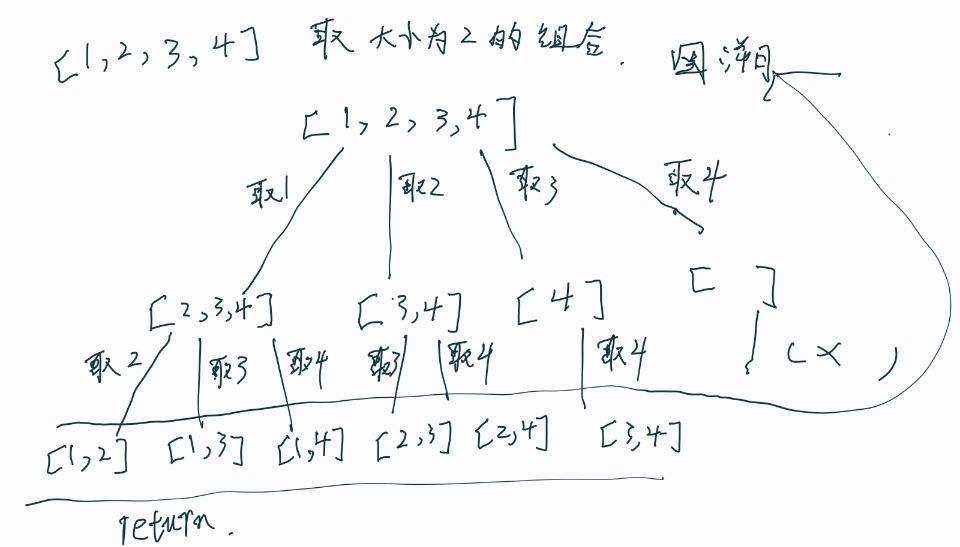 [1,2,3,4] 取大小为2的组合. 回溯
[1,2,3,4]
取1 取2 取3 取4
[2,3,4] [3,4] [4] [ ]
取2 取3 取4 取3 取4 取4 (×)
[1,2] [1,3] [1,4] [2,3] [2,4] [3,4]
return.